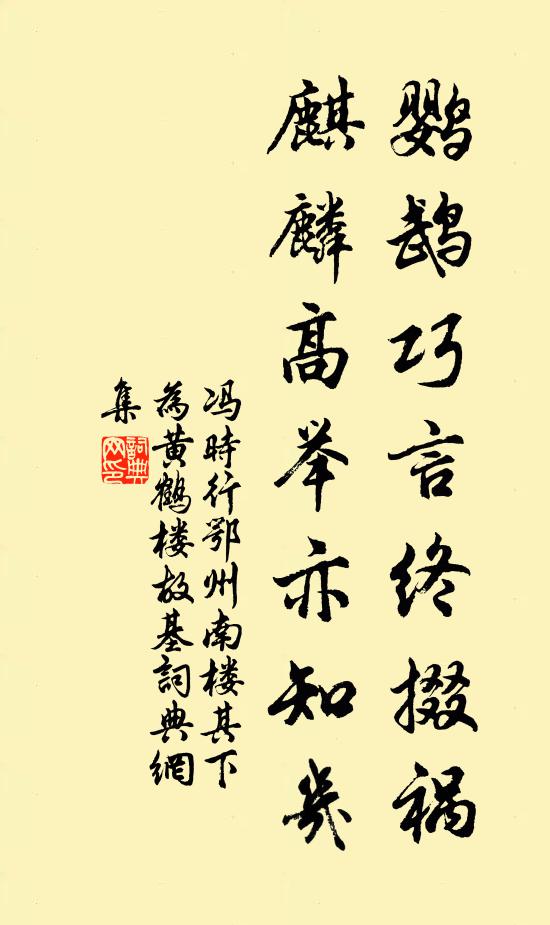 鹦鹉巧言终掇祸
麒麟高举亦知几
冯時行鄂州南楼其下
為黄鹤楼故基詞典網
集
詞典
网印